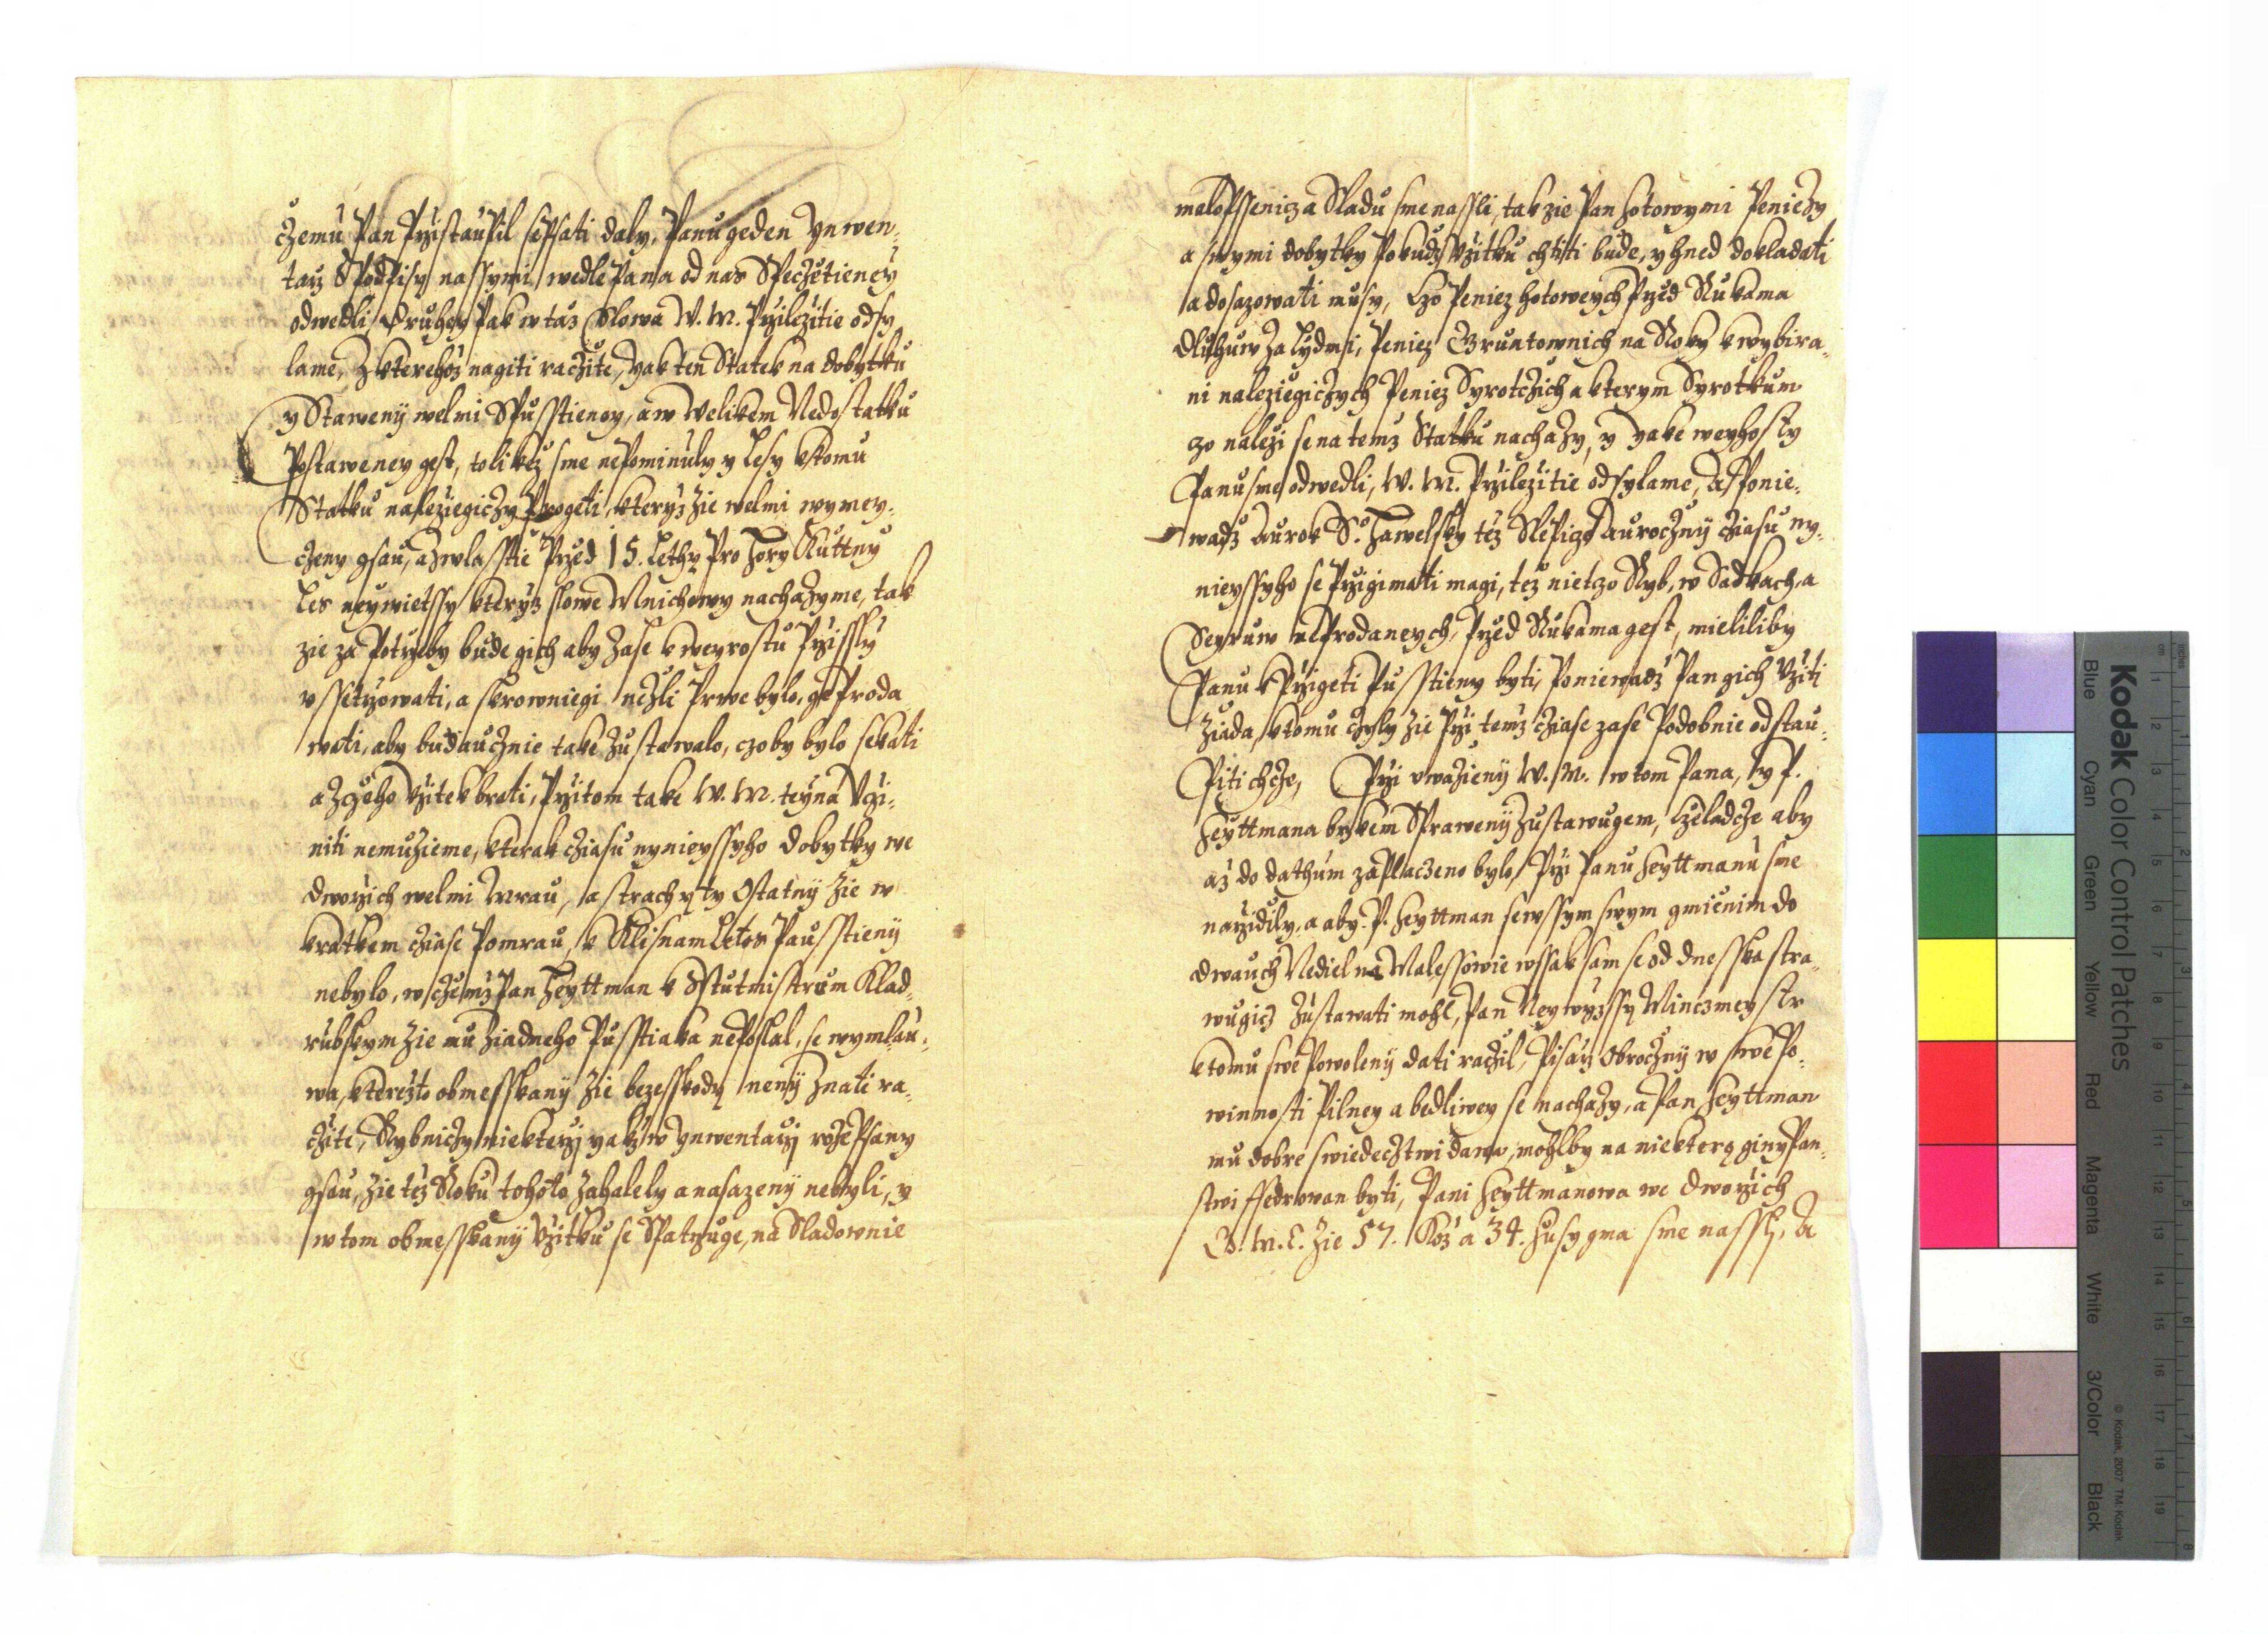 cžemu Pan Pržistaupil sepsati daly, Panu geden Ynwen-
tarz s Podpisy nassymi, wedle Pana od nas Specžetieney
odwedli, Druhey Pak w taz Slowa W. M. Pržiležitie odsy
lame, z kterehož nagiti račžite, yak ten Statek na dobytku
y Stawenij welmi Spusstieney, a w Welikem Nedostatku
Postaweney gest, tolikéž sme nepominuly y Lesy k tomu
Statku naležiegiczy Progeti, kteryž žie welmi wymey-
czeny gsau, a zwlasstie Pržed 15. Lethy Pro Hory Kuttny
Les neywietssy kteryž slowe Mnichowy nachazyme, tak
žie za Potržeby bude gich aby zase k weyrostu Pržissly
ussetržowati, a skrowniegi nežli Prwe bylo, ge Proda
wati, aby budaucžnie take zustawalo, czoby bylo sekati
a z geho užitek brati, Pržitom take W. M. teyna Vgi-
niti nemužieme, kterak cžiasu nynieyssyho dobytky we
dworžich welmi Mrau, a strach y ty Ostatnij žie w
kratkem cžiase Pomrau, k Klisnam Letos Pausstienij
nebylo, w cžemž Pan Heyttman k Sstutmistrum Klad-
rubskym žie mu žiadneho Pusstiaka neposlal, se wymlau-
wa, kterežto obmesskanij žie bezesskody nenij znati ra-
cžite, Rybniczy niekterij yakž w Ynwentarži rozepsany
gsau, žie téz Roku tohoto zahalely a nasazenij nebyli, y
w tom obmesskanij Vžitku se Spatržuge, na Sladownie
malo Pssenicz a Sladu sme nassli, tak žie Pan hotowymi Peniezy
a swymi dobytky Pokudž Vžitku chtiti bude, y hned dokladati
a dosazowati musy, Czo Peniez hotoweych Pržed Rukama
Dluhuw za Lydmi, Peniez Gruntownich na Roky k wybira-
ni naležiegiczych Peniez Syrotcžich a kterym Syrotkum
czo naleži se na temž Statku nachazy, y yake weyhosty
Panu sme odwedli, W. M. Pržiležitie odsylame, A Ponie-
wadž Aurok S. Hawelsky též Slepicze Aurocžnij cžiasu ny-
nieyssyho se Pržigimati magi, též nietczo Ryb, w Sadkach, a
Seyruw neprodaneych, Pržed Rukama gest, mieliliby
Panu k Pržigeti Pusstieny byti, Poniewadž Pan gich Užiti
žiada, k tomu cžyly žie Prži temž cžiase zase Podobnie odstau-
piti chcze, Prži uwažienij W. M. w tom Pana, y P.
Heyttmana bržkem Sprawenij zustawugem, Cželadcze aby
až do dathum zaplaczeno bylo, Pržy Panu Heyttmanu sme
naržidily, a aby P. Heyttman se wssym swym gmienim do
dwauch Nediel na Malessowie wssak sam se od dnesska stra-
wugicz zustawati mohl, Pan Neywyžssy Minczmeystr
k tomu swé Powolenij dati račžil, Pisarž Obrocžnij w swé Po-
winnosti Pilney a bedliwey se nachazy, a Pan Heyttman
mu dobré swiedecztwi dawa, mohlby na niektery giny Pan-
stwi ffedrowan byti, Pani Heyttmanowa we dworžich
G. M. C. žie 57. Koz a 34. Husy gma sme nassly, A